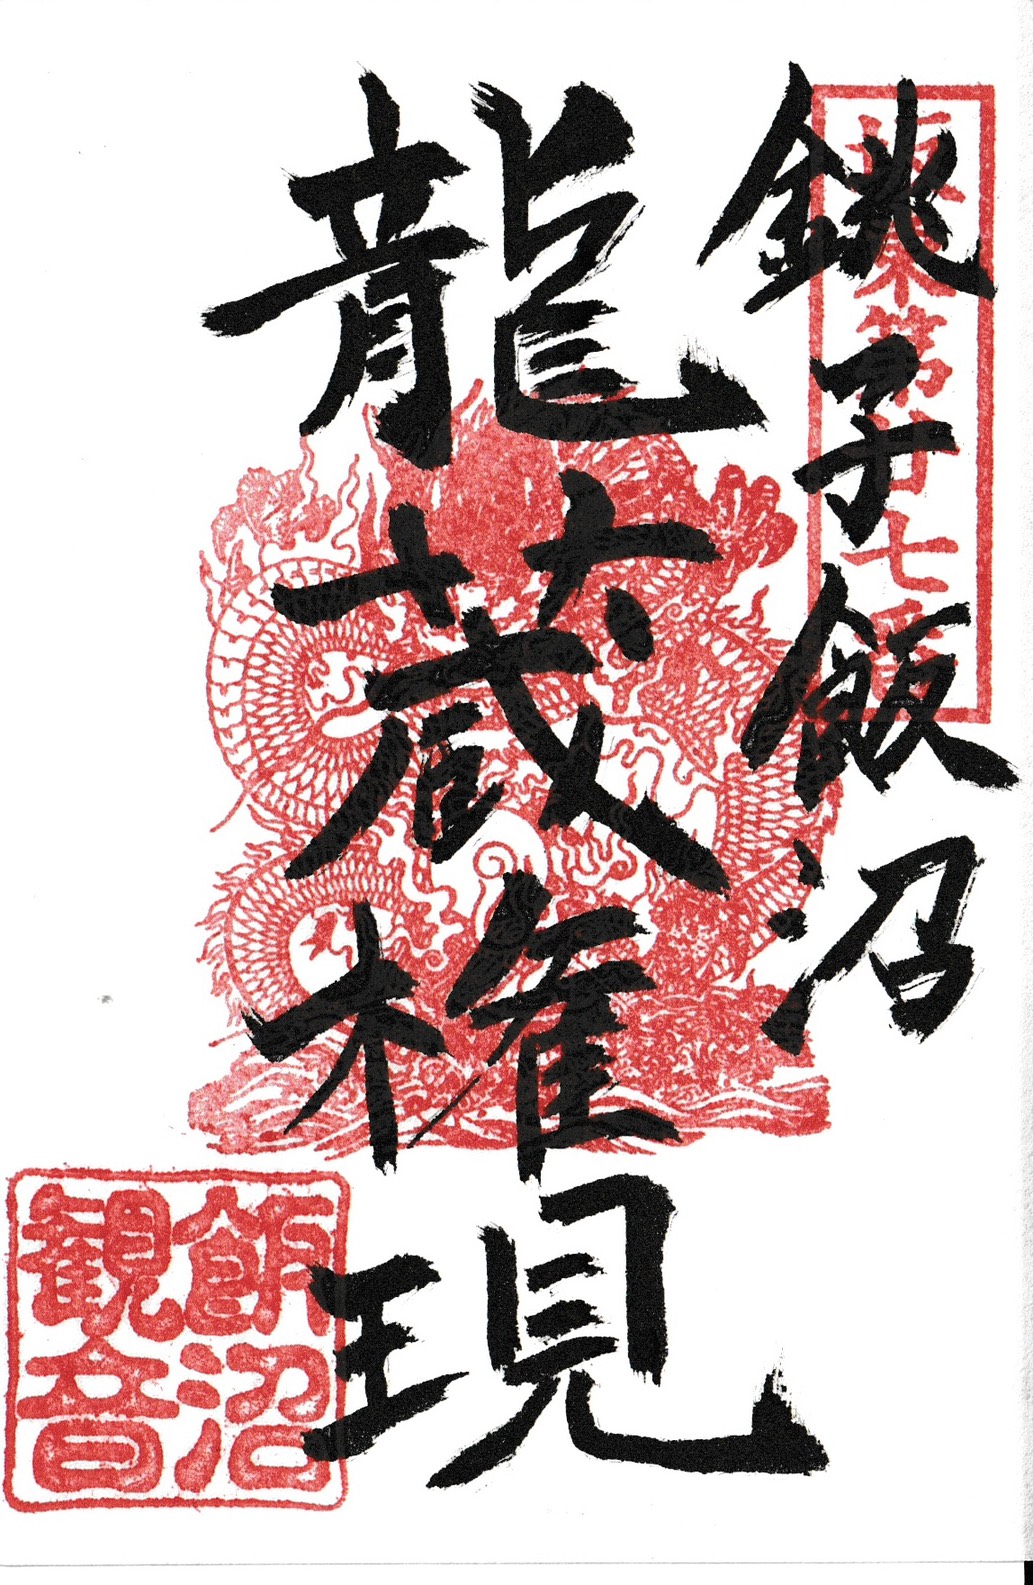 坂東第廿七番
銚子飯沼
龍蔵権現
飯沼
観音